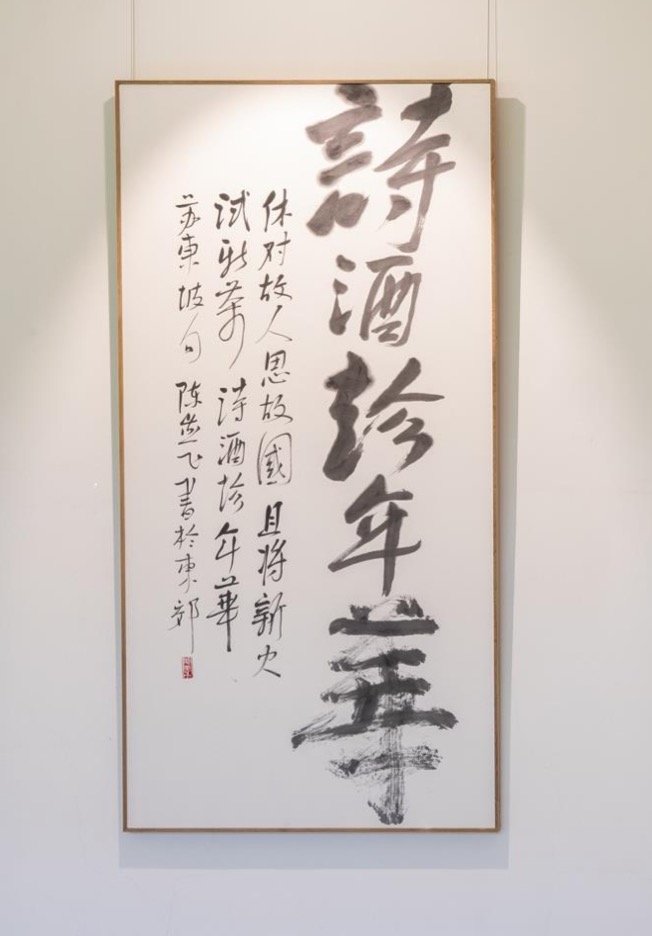 詩酒趁年華
休对故人思故國 且将新火
试新茶 诗酒趁年華
苏東坡句 陈飞書於東郊